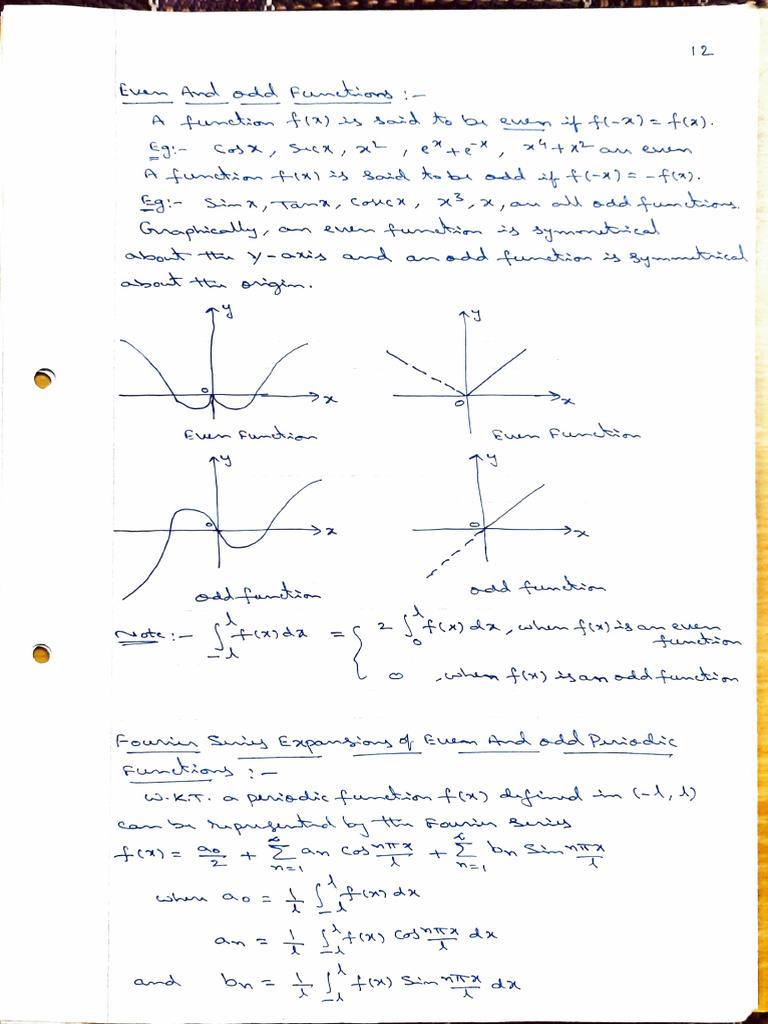 12
Even And odd Functions :-
A function f(x) is said to be even if f(-x) = f(x).
Eg:- Cosx, Secx, x², eˣ+e⁻ˣ, x⁴+x² are even
A function f(x) is said to be odd if f(-x) = -f(x).
Eg:- Sinx, Tanx, Cosecx, x³, x, are all odd functions.
Graphically, an even function is symmetrical
about the Y-axis and an odd function is symmetrical
about the origin.
y y
0 x 0 x
Even Function Even Function
y y
0 x 0 x
odd function odd function
Note:- ∫_{-l}^{l} f(x)dx = { 2 ∫_0^l f(x)dx, when f(x) is an even function
0, when f(x) is an odd function
Fourier Series Expansions of Even And odd Periodic
Functions :-
W.K.T. a periodic function f(x) defined in (-l, l)
can be represented by the Fourier Series
f(x) = a₀/2 + Σ_{n=1}^{∞} an Cos nπx/l + Σ_{n=1}^{∞} bn Sin nπx/l
where a₀ = 1/l ∫_{-l}^{l} f(x)dx
an = 1/l ∫_{-l}^{l} f(x) Cos nπx/l dx
and bn = 1/l ∫_{-l}^{l} f(x) Sin nπx/l dx